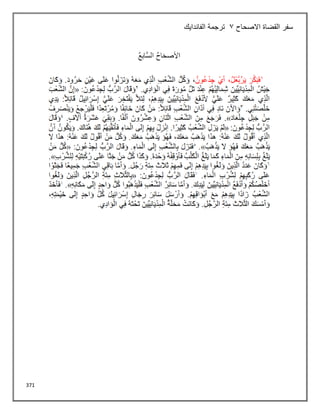 سفر القضاة الاصحاح ٧ ترجمة الفاندايك
اَلأَصْحَاحُ السَّابِعُ
١فَبَكَّرَ يَرُبَّعْلُ، أَيْ جِدْعُونُ، وَكُلُّ الشَّعْبِ الَّذِي مَعَهُ وَنَزَلُوا عَلَى عَيْنِ حَرُودَ. وَكَانَ
جَيْشُ الْمِدْيَانِيِّينَ شِمَالِيَّهُمْ عِنْدَ تَلِّ مُورَةَ فِي الْوَادِي. ٢وَقَالَ الرَّبُّ لِجِدْعُونَ: «إِنَّ الشَّعْبَ
الَّذِي مَعَكَ كَثِيرٌ عَلَيَّ لأَدْفَعَ الْمِدْيَانِيِّينَ بِيَدِهِمْ، لِئَلاَّ يَفْتَخِرَ عَلَيَّ إِسْرَائِيلُ قَائِلاً: يَدِي
خَلَّصَتْنِي. ٣وَالآنَ نَادِ فِي آذَانِ الشَّعْبِ قَائِلاً: مَنْ كَانَ خَائِفًا وَمُرْتَعِدًا فَلْيَرْجِعْ وَيَنْصَرِفْ
مِنْ جَبَلِ جِلْعَادَ». فَرَجَعَ مِنَ الشَّعْبِ اثْنَانِ وَعِشْرُونَ أَلْفًا. وَبَقِيَ عَشَرَةُ آلاَفٍ. ٤وَقَالَ
الرَّبُّ لِجِدْعُونَ: «لَمْ يَزَلِ الشَّعْبُ كَثِيرًا. انْزِلْ بِهِمْ إِلَى الْمَاءِ فَأُنَقِّيَهُمْ لَكَ هُنَاكَ. وَيَكُونُ أَنَّ
الَّذِي أَقُولُ لَكَ عَنْهُ: هذَا يَذْهَبُ مَعَكَ، فَهُوَ يَذْهَبُ مَعَكَ. وَكُلُّ مَنْ أَقُولُ لَكَ عَنْهُ: هذَا لاَ
يَذْهَبُ مَعَكَ فَهُوَ لاَ يَذْهَبُ». ٥فَنَزَلَ بِالشَّعْبِ إِلَى الْمَاءِ. وَقَالَ الرَّبُّ لِجِدْعُونَ: «كُلُّ مَنْ
يَلَغُ بِلِسَانِهِ مِنَ الْمَاءِ كَمَا يَلَغُ الْكَلْبُ فَأَوْقِفْهُ وَحْدَهُ. وَكَذَا كُلُّ مَنْ جَثَا عَلَى رُكْبَتَيْهِ لِلشُّرْبِ».
٦وَكَانَ عَدَدُ الَّذِينَ وَلَغُوا بِيَدِهِمْ إِلَى فَمِهِمْ ثَلاَثَ مِئَةِ رَجُل. وَأَمَّا بَاقِي الشَّعْبِ جَمِيعًا فَجَثَوْا
عَلَى رُكَبِهِمْ لِشُرْبِ الْمَاءِ. ٧فَقَالَ الرَّبُّ لِجِدْعُونَ: «بِالثَّلاَثِ مِئَةِ الرَّجُلِ الَّذِينَ وَلَغُوا
أُخَلِّصُكُمْ وَأَدْفَعُ الْمِدْيَانِيِّينَ لِيَدِكَ. وَأَمَّا سَائِرُ الشَّعْبِ فَلْيَذْهَبُوا كُلُّ وَاحِدٍ إِلَى مَكَانِهِ». ٨فَأَخَذَ
الشَّعْبُ زَادًا بِيَدِهِمْ مَعَ أَبْوَاقِهِمْ. وَأَرْسَلَ سَائِرَ رِجَالِ إِسْرَائِيلَ كُلَّ وَاحِدٍ إِلَى خَيْمَتِهِ،
وَأَمْسَكَ الثَّلاَثَ مِئَةِ الرَّجُلِ. وَكَانَتْ مَحَلَّةُ الْمِدْيَانِيِّينَ تَحْتَهُ فِي الْوَادِي.
371